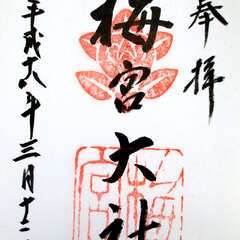 奉拝
梅宮大社
平成十八年三月十二